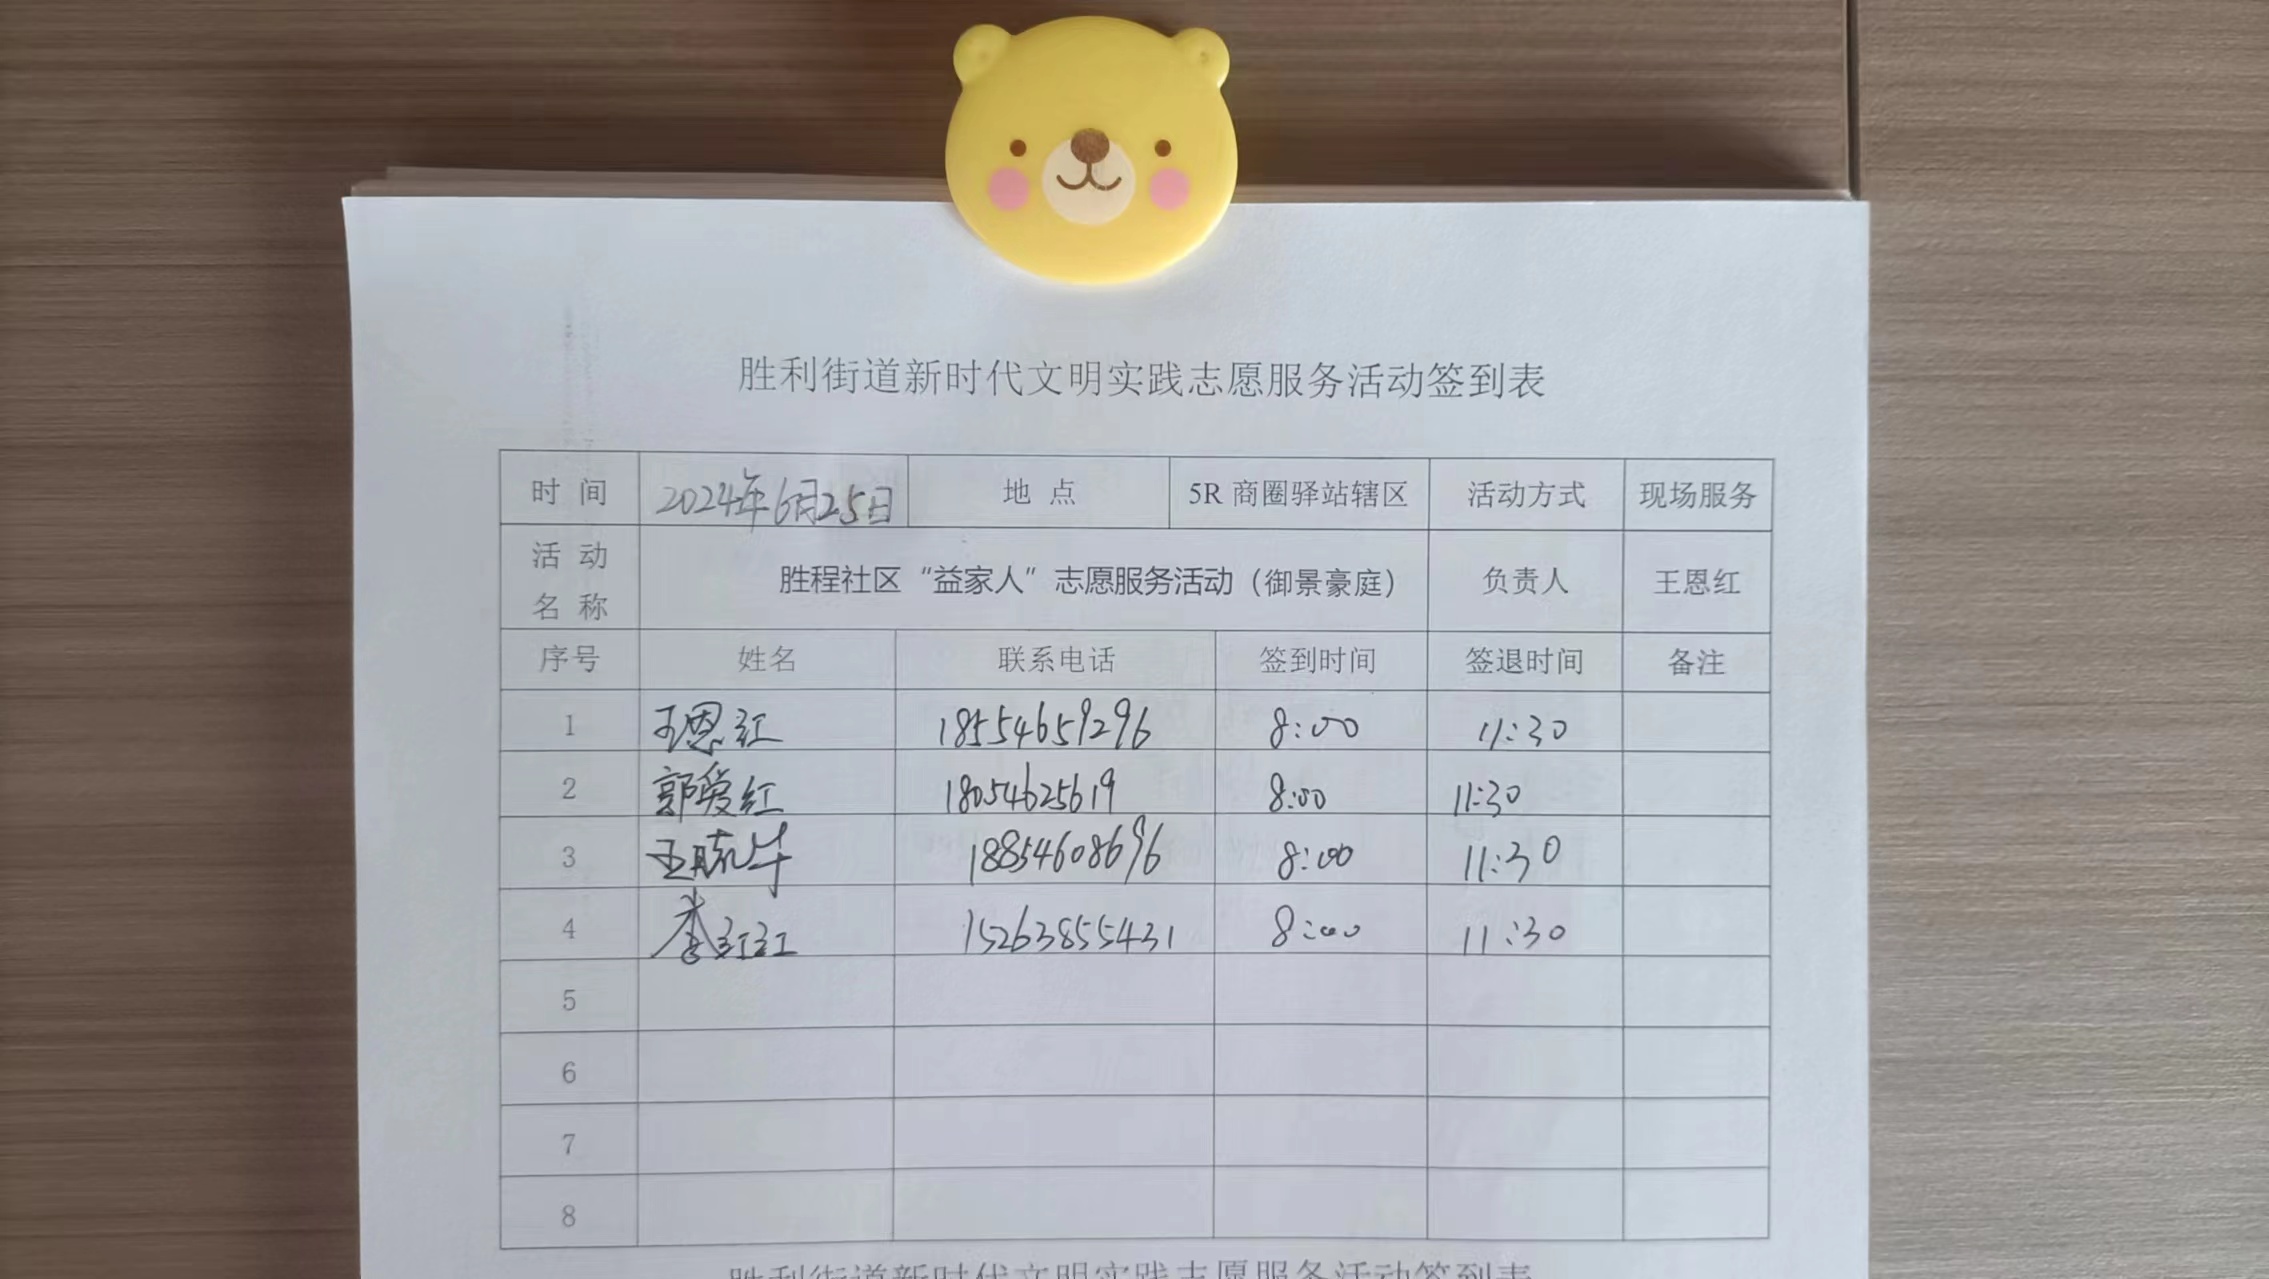 胜利街道新时代文明实践志愿服务活动签到表
时 间 2024年6月25日 地 点 5R 商圈驿站辖区 活动方式 现场服务
活 动 名 称 胜程社区“益家人”志愿服务活动（御景豪庭） 负责人 王恩红
序号 姓名 联系电话 签到时间 签退时间 备注
1 王恩红 18554659296 8:00 11:30
2 郭爱红 18054625619 8:00 11:30
3 王晓华 18854608696 8:00 11:30
4 李红红 15263855431 8:00 11:30
5
6
7
8
胜利街道新时代文明实践志愿服务活动签到表